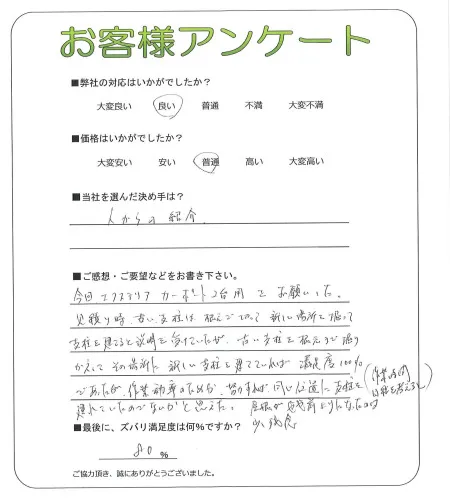 お客様アンケート
■弊社の対応はいかがでしたか?
大変良い 良い 普通 不満 大変不満
■価格はいかがでしたか?
大変安い 安い 普通 高い 大変高い
■当社を選んだ決め手は?
人からの紹介
■ご感想・ご要望などをお書き下さい。
今回エクステリア カーポート2台用をお願いした。
見積り時、古い支柱は根元で切って 新しい場所を掘って
支柱を建てると説明を受けていたが、古い支柱を根元まで掘り
かえして その場所に 新しい支柱を建てていれば 満足度100%
であったが、作業効率のためか、
同じ位置に支柱を
建れていたのでないかと思えた。
少々残念
■最後に、ズバリ満足度は何%ですか?
80%
ご協力頂き、誠にありがとうございました。